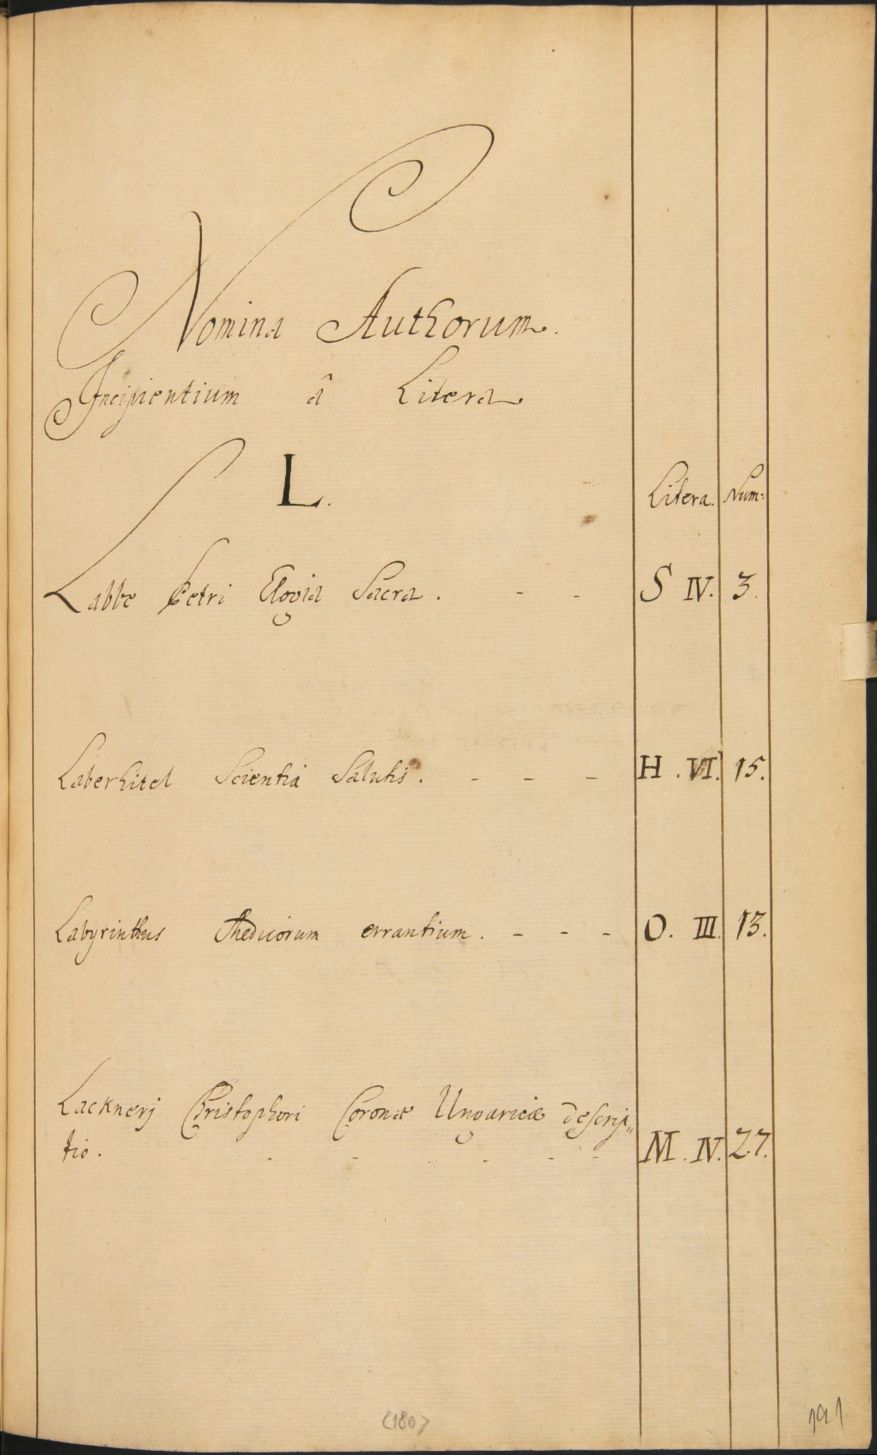 Nomina Authorum.
Incipientium â Litera
L.
Litera. Num:
Labbe Petri Elogia Sacra. - - S IV. 3.
Laberhitel Scientia Salutis. - - - H. VI. 15.
Labyrinthus Medicorum errantium. - - - O. III. 13.
Lacknerj Christophori Coronæ Ungaricæ descrip„
tio. - - - - - - M. IV. 27.
(180)
191